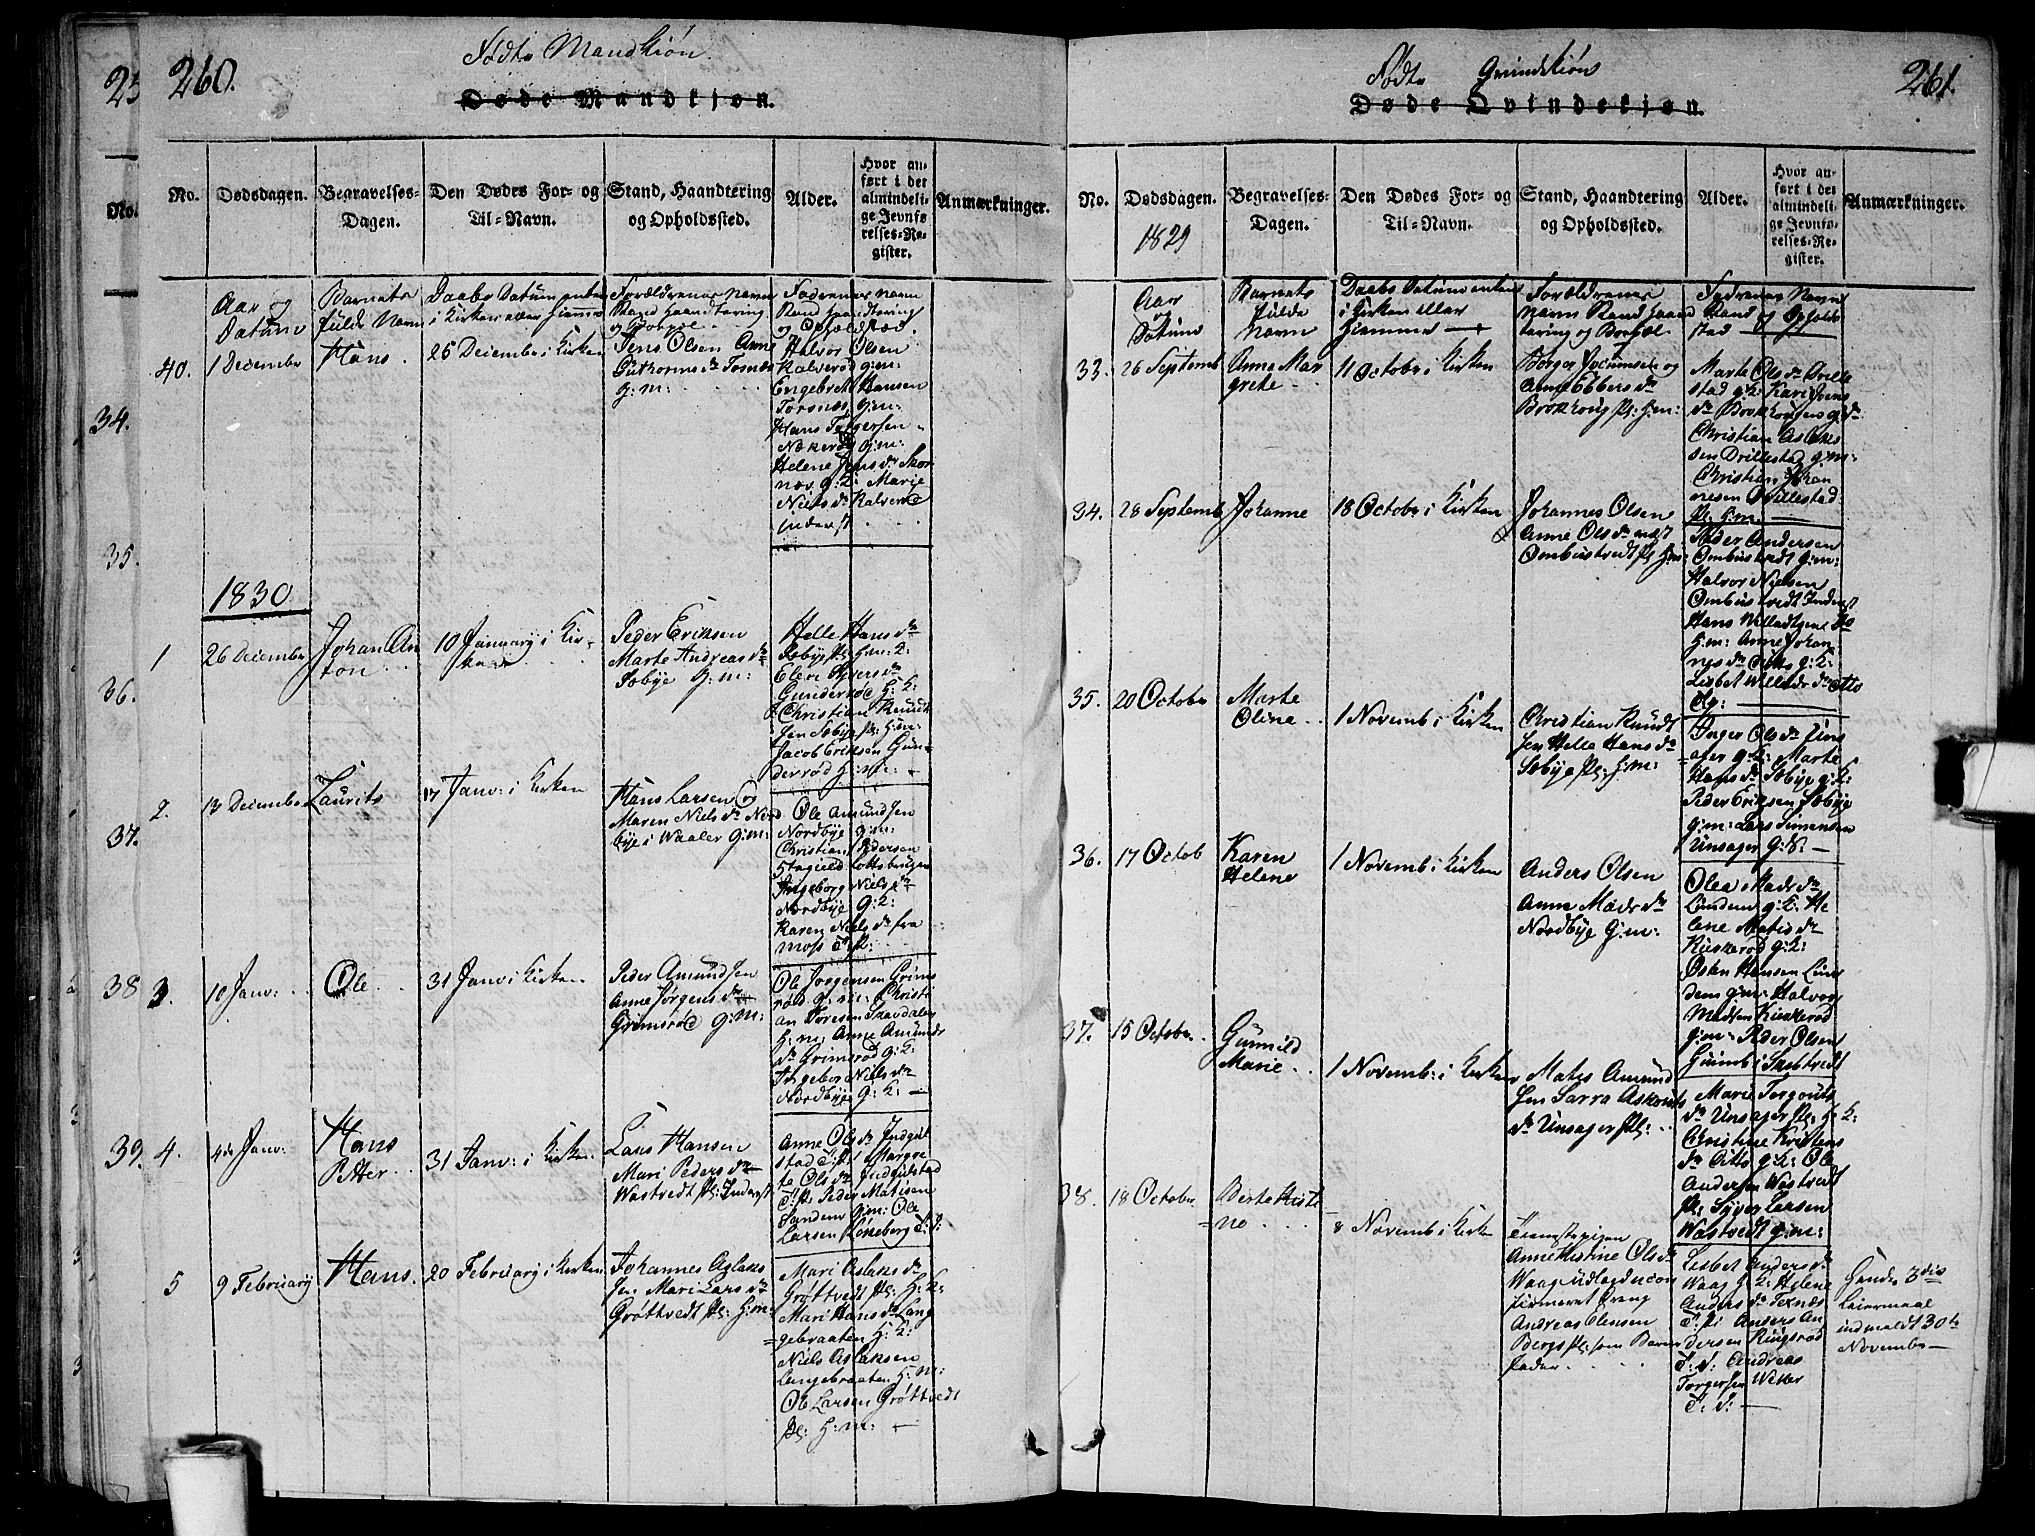 260.
Fødte Mandkiøn.
Døde Mandkjøn.
No.
Dødsdagen.
Begravelses-
Dagen.
Den Dødes For- og
Til-Navn.
Stand, Haandtering
og Opholdssted.
Alder.
Hvor an-
ført i det
almindeli-
ge Jevnfø-
relses-Re-
gister.
Anmærkninger.
Aar og
Datum
Barnets
fulde Navn
Daabs Datum enten
i Kirken eller hiemme
Forældrenes Navn
Stand Haandtering
og Bopæl
Fadrenes Navn
Stand Haandtering
og Opholdsted.
40.
1 December
Hans.
26 December i Kirken
Jens Olsen Anne
Guthormsdr Torsnes
g:m:
Halvor Olsen
Kalverød g:m:
Engebret Hansen
Torsnæs g:m:
Hans Torgersen
Nækerød g:m:
Helene Jensdr Skor
nes g:k: Marie
Nielsdr Kalverød
inderst
1830
1
26 December
Johan An
ton
10 January i Kir-
ken
Peder Eriksen
Marte Andreasdr
Sobye g:m:
Helle Hansdr
Sobye Pl: H:m: k:
Eleri Syversdr
Gunderød H: k:
Christian Knudt
sen Sobye Pl: H:m:
Jacob Eriksen Gun-
derrød H:m:
2.
13 December
Laurits
17 Janv: i Kirken
Hans Larsen og
Maren Nielsdr Nord
bye i Waaler g:m:
Ole Amundsen
Nordbye g:m:
Christian Pedersen
Ingeborg Nielsdr
Nordbye g:k:
Karen Nielsdr fra
Moss T:P:
3.
10 Janv:
Ole
31 Janv: i Kirken
Peder Amundsen
Anne Jørgensdr
Grimsrød g:m:
Ole Jorgensen Grims
rød g:m: Christi
an Toresen Skavdalen
H:m: Anne Amunds
dr Grimsrød g:k:
Ingebor Nielsdr
Nordbye g:k:
4.
4de Janv:
Hans
Petter
31 Janv: i Kirken
Lars Hansen
Mari Pedersdr
Wastvedt Pl: Inderst
Anne Olsdr Indgul
stad T:P: Margre
te Olsdr Indgulstad
T:P: Peder Matisen
Sanden g:m: Ole
Larsen Kōneberg T:D:
5
9 February
Hans.
20 February i Kirken
Johannes Aslak
sen Mari Larsdr
Grøthvedt Pl: H:m:
Mari Aslaksdr
Grøttvedt Pl: H:k:
Mari Hansdr Lang
gebraaten H:k:
Niels Aslaksen
Langebraaten H:m:
Ole Larsen Grøttvedt
Pl: H:m:
25
No.
34.
35.
36.
37.
38
39.
261.
Fødte Qvindekiøn
Døde Qvindekjøn.
No.
Dødsdagen.
1829
Begravelses-
Dagen.
Den Dødes For- og
Til-Navn.
Stand, Haandtering
og Opholdssted.
Alder.
Hvor an-
ført i det
almindeli-
ge Jevnfø-
relses-Re-
gister.
Anmærkninger.
Aar
og
Datum
Barnets
fulde
Navn
Daabs Datum enten
i Kirken eller
hiemme
Forældrenes
Navn Stand Haand
tering og Bopæl
Fadrenes Navn
Stand og Ophold
sted
33.
26 Septemb
Anne Mar
grete
11 October i Kirken
Borger Joxumsen og
Anne Ebbersdr
Brokkoug Pl: H:m:
Marte Olsdr Drille
stad g:k: Kari Jens
dr Brokkougen g:dr
Christian Aslaks
sen Drillestad g:m:
Christian Johan
nesen Drillestad
Pl: H:m:
34.
28 Septemb
Johanne
18 October i Kirken
Johannes Olsen
Anne Olsdr
Ombustvedt Pl: H:m:
Peder Andersen
Ombustvedt g:m:
Halvor Nielsen
Ombustvedt Inderst
Hans Willadsen Otto
H:m: Anne Johan
nesdr Otto g:k:
Lisbet Willadsdr Otto
Pig:
35.
20 October
Marte
Oline
1 Novemb i Kirken
Christian Knudt
sen Helle Hansdr
Sobye Pl: H:m:
Inger Olsdr Uns
ager g:k: Marte
Hansdr Sobye g:k:
Peder Eriksen Sobye
g:m: Lars Simensen
Unsager g:k:
36.
17 Octob
Karen
Helene
1 Novemb i Kirken
Anders Olsen
Anne Madsdr
Nordbye g:m:
Olea Madsdr
Lundem g:k: He
lene Matisdr
Kiskerød g:k:
Osten Hansen Lun
dem g:m: Halvor
Madsen Kiskerød
g:m: Peder Olsen
Huumb i Sastvedt
37.
15 October.
Gunnild
Marie
1 Novemb: i Kirken
Mates Amund
sen Sarra Askouts
dr Unsager Pl:
Mari Torgouts
dr Unsager Pl: H:k:
Christine Kristens
dr Ditto g:k: Ole
Andersen Wastvedt
Pl: Syver Larsen
Wastvedt g:m:
38.
18 October.
Berte Kristi
ne
8 Novemb i Kirke
Tienestepigen
Anne Kistine Olsdr
Waag udlagd ucon
firmeret Dreng
Andreas Olensen
Bergs Pl: som Barne
fader
Lisbet Andersdr
Waag g:k: Helene
Andersdr Texnæs
T:P: Anders An
dersen Ringsrød
T:D: Andreas
Torgersen Wetter
T:D:
Hendes 3die
Leiermaal
indmeldt 30te
November